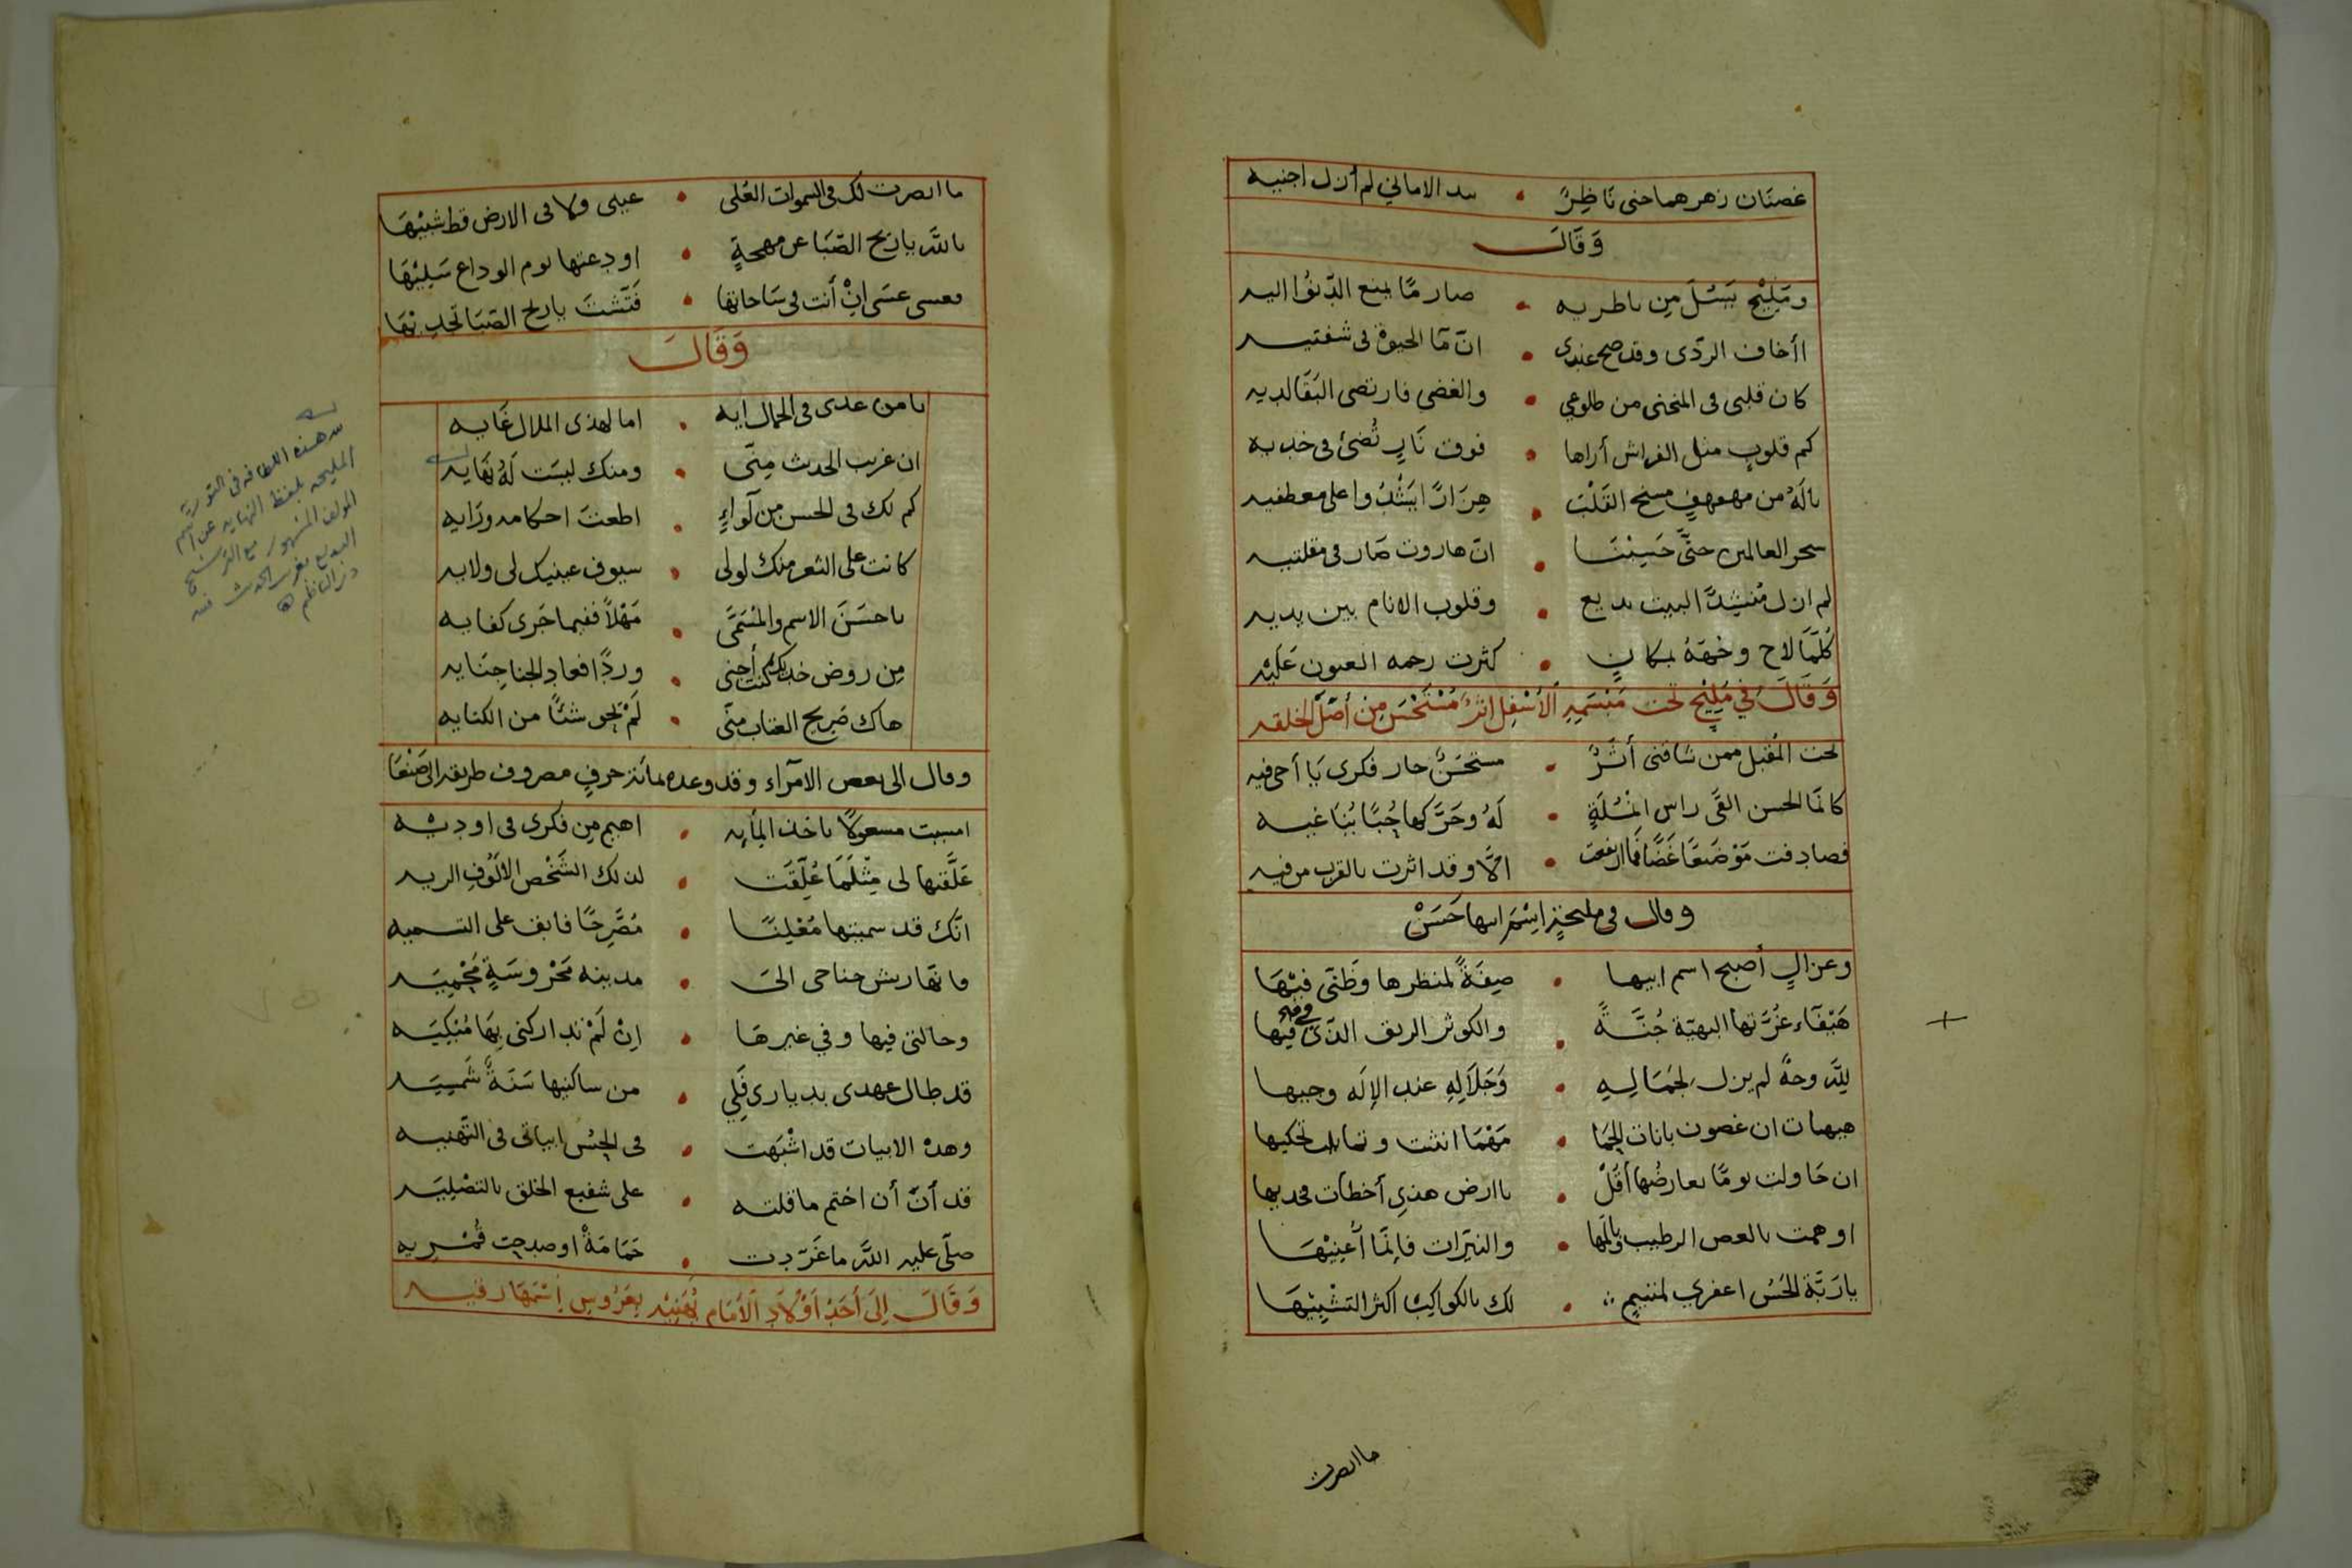 غصنان زهرهما جنى ناظِرٌ • بيد الاماني لم أزل اجنيه
وَقَالَ
ومَلِيْحٍ يَسُلَ مِن ناظريه • صارمًا يمنع الدّنُوا اليه
أأخاف الردّى وقد صح عندى • انّ مَآ الحيوة فى شفتيه
كان قلبى فى المنحنى من ضلوعي • والغضى فارتضى البَقَا لديه
كم قلوبٍ مثل الفراش أراها • فوق نَارٍ تُضئ فى خديه
يالَهُ من مهفهفٍ مسخ القَلْبَ • هِزَارًا يَشْدُوا على معطفيه
سحر العالمين حتَّى حَسِبْنَا • انّ هاروت صَار فى مقلتيه
لم ازل مُنشِدًا لبيت بديع • وقلوب الانام بين يديه
كُلَّمَا لاح وجْهَهُ بمكانٍ • كثرت زحمه العيون عَليْه
وَقَالَ فِي مَلِيْحٍ تحت مَبْسَمِهِ الأسْفِل اثرٌ مُسْتَحْسَن مِن أصْل الخلقه
تحت المُقبل ممن شاقنى أَثَرٌ • مستحْسَنٌ حار فكرى يَا أخى فيه
كانمَا الحسن القَى راس انْمُلَةٍ • لَهُ وحَرَّكها حُبًّا يُنَاغيه
فصادفت مَوْضعًا غَضًّا فمَا ارتفعت • الَّا وقد اثرت بالقرب من فيه
وقال فى مليحَةٍ اسْمُ ابيها حَسَنْ
وغزالٍ أصبح اسم ابيها • صِفَةً لمنظرها وظَنّى فيْهَا
هَيْفَاء غُرَّتها البهيّة جُنَّةً • والكوثر الريق الذّى فى فِيها
لِلَّه وجهٌ لم يزل لجَمَالِهِ • وَجَلَالِهِ عند الإلَه وجيها
هيهات ان غصون بانات الحِمَا • مَهْمَا انثنت وتمايلت تحكيها
ان حَاولت يومًا تعارضُها أقلْ • يا ارض هذى أخطأت فخديها
او همت بالغصن الرطيب وبالمَها • والنيّرات فإنمَّا أعْنِيْهَا
يا رَبَّة الحُسْن اغفري لمتيمٍ • لك بالكواكِبْ اكثر التشْبِيْهَا
ما ابصرت
ما ابصرت لك فى السموات العُلى • عينى ولا فى الارض قط شبيْهَا
بالله يا ريْح الصّبَا عن مهجةٍ • اودعتها يوم الوداع سَلِيْهَا
فعسى عسَى انْ أنت فى سَاحاتها • فَتّشْتَ يا ريح الصّبَا تجديْهَا
وَقَالَ
يا من غدى فى الجمال آيه • اما لهذى الملال غَايه
ان غريب الحدث مِنّى • ومنك ليسَت لَهُ نهَايه
كم لك فى الحسن مِن لَواءٍ • اطعتَ احكامه ورَايه
كانت على الثغر منك لولى • سيوف عينيك لى ولايه
يا حسَنَ الاسم والمُسَمَّى • مَهْلًا ففيما جَرى كفايه
مِن روض خديك كنت أجنى • وردًا فعاد الجنا جِنَايه
هاك صَريح العتاب مِنّى • لَمْ تحو شيئًا من الكنايه
وقال الى بعض الامَراء وقد وعده بمائة حرفٍ مصروف طريقه الى صَنْعَا
امسيت مسعولًا باخذ المأيه • اهيم مِن فكرى فى اوديْه
عَلَّقتها لى مِثْلَمَا عُلّقَت • لذلك الشَخْص الالُوْف الريه
انّك قد سميتها مُعْلِنًا • مُصَّرِحًا فابق على التسميه
فانهَا ريش جناحى الى • مدينه مَحْروسَةٍ مَحْمِيَه
وحالتى فيها وفي غيرهَا • انْ لَمْ تداركنى بِهَا مُبْكِيَه
قد طال عهدى بديارى فَلِي • من ساكنيها سَنَةٌ شَمْسِيَه
وهذه الابيات قد اشْبَهَت • فى الحُسْن ابياتى فى التّهنيه
قد أنّ أن اختم ما قلته • على شفيع الخلق بالتصْلِيَه
صلّى عليه اللّه ما غَرّدت • حَمَامَةٌ او صدحت قُمْرِيه
وَقَالَ إلىَ أَحَدْ اَوْلَادِ الأمَام يُهَنِيْه بعَرُوسٍ اسْمُهَا رقيه